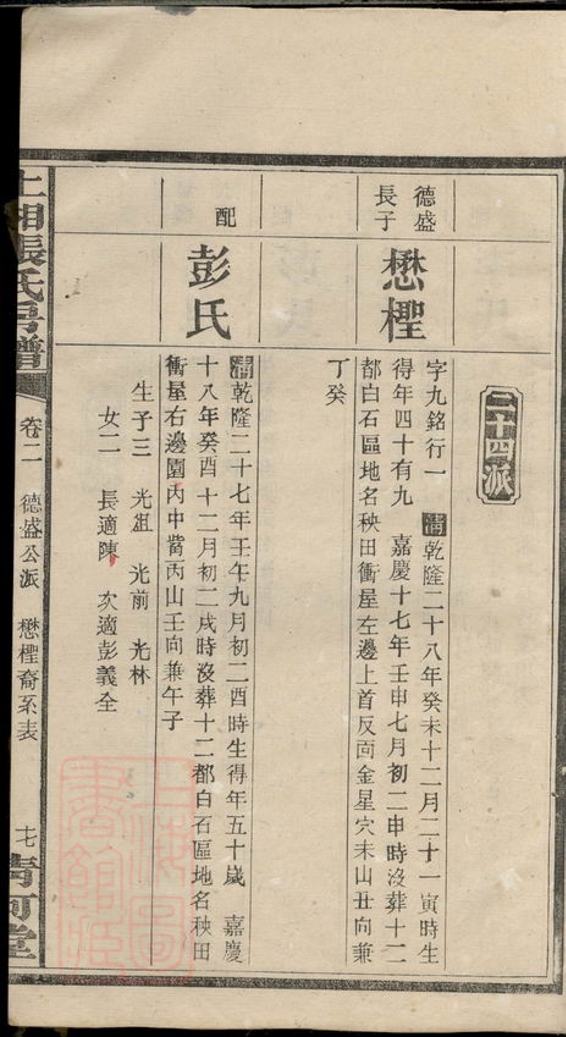 二十四派
德盛
長子
懋檉
字九銘行一　清乾隆二十八年癸未十二月二十一寅時生
得年四十有九　嘉慶十七年壬申七月初二申時沒葬十二
都白石區地名秧田衝屋左邊上首反面金星穴未山丑向兼
丁癸
配
彭氏
清乾隆二十七年壬午九月初二酉時生得年五十歲　嘉慶
十八年癸酉十二月初二戌時沒葬十二都白石區地名秧田
衝屋右邊園內中嘴丙山壬向兼午子
生子三　光組　光前　光林
女二　長適陳　次適彭義全
上湘張氏房譜
卷二　德盛公派　懋檉裔系表
十七
清河堂